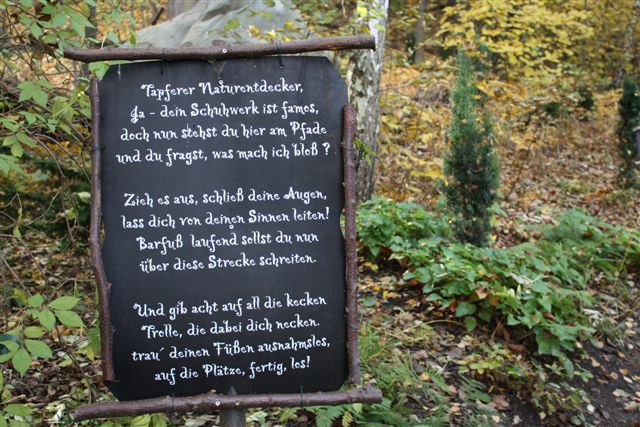 Tapferer Naturentdecker,
Ja - dein Schuhwerk ist famos,
doch nun stehst du hier am Pfade
und du fragst, was mach ich bloß ?
Zieh es aus, schließ deine Augen,
lass dich von deinen Sinnen leiten!
Barfuß laufend sollst du nun
über diese Strecke schreiten.
Und gib acht auf all die kecken
Trolle, die dabei dich necken.
trau´ deinen Füßen ausnahmslos,
auf die Plätze, fertig, los!